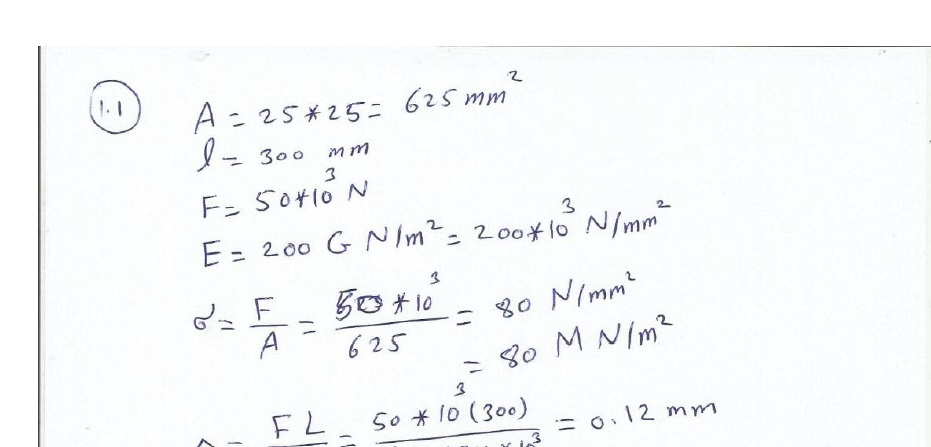 1.1
A = 25*25 = 625 mm²
l = 300 mm
F = 50*10³ N
E = 200 G N/m² = 200*10³ N/mm²
σ = F/A = 50*10³/625 = 80 N/mm²
= 80 M N/m²
FL = 50*10³(300) = 0.12 mm